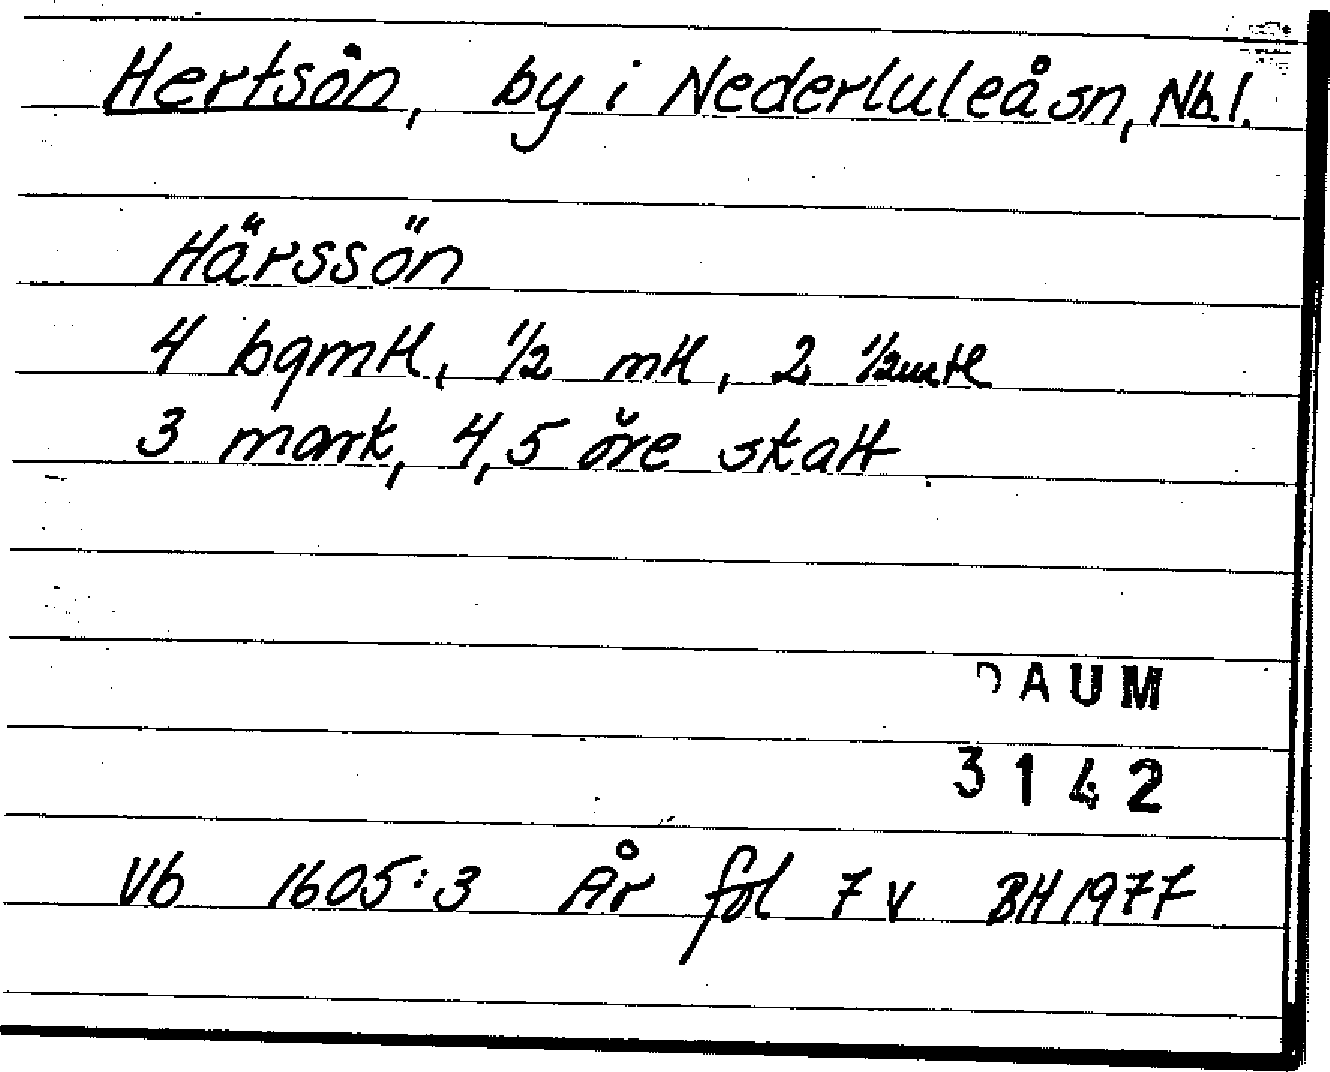 Hertsön, by i Nederluleå sn, Nb. l.
Härssön
4 bgmtl, 1/2 mtl, 2 1/2 mtl
3 mark, 4,5 öre skatt
DAUM
3142
Vb 1605:3 År fol 7 v BH 1977